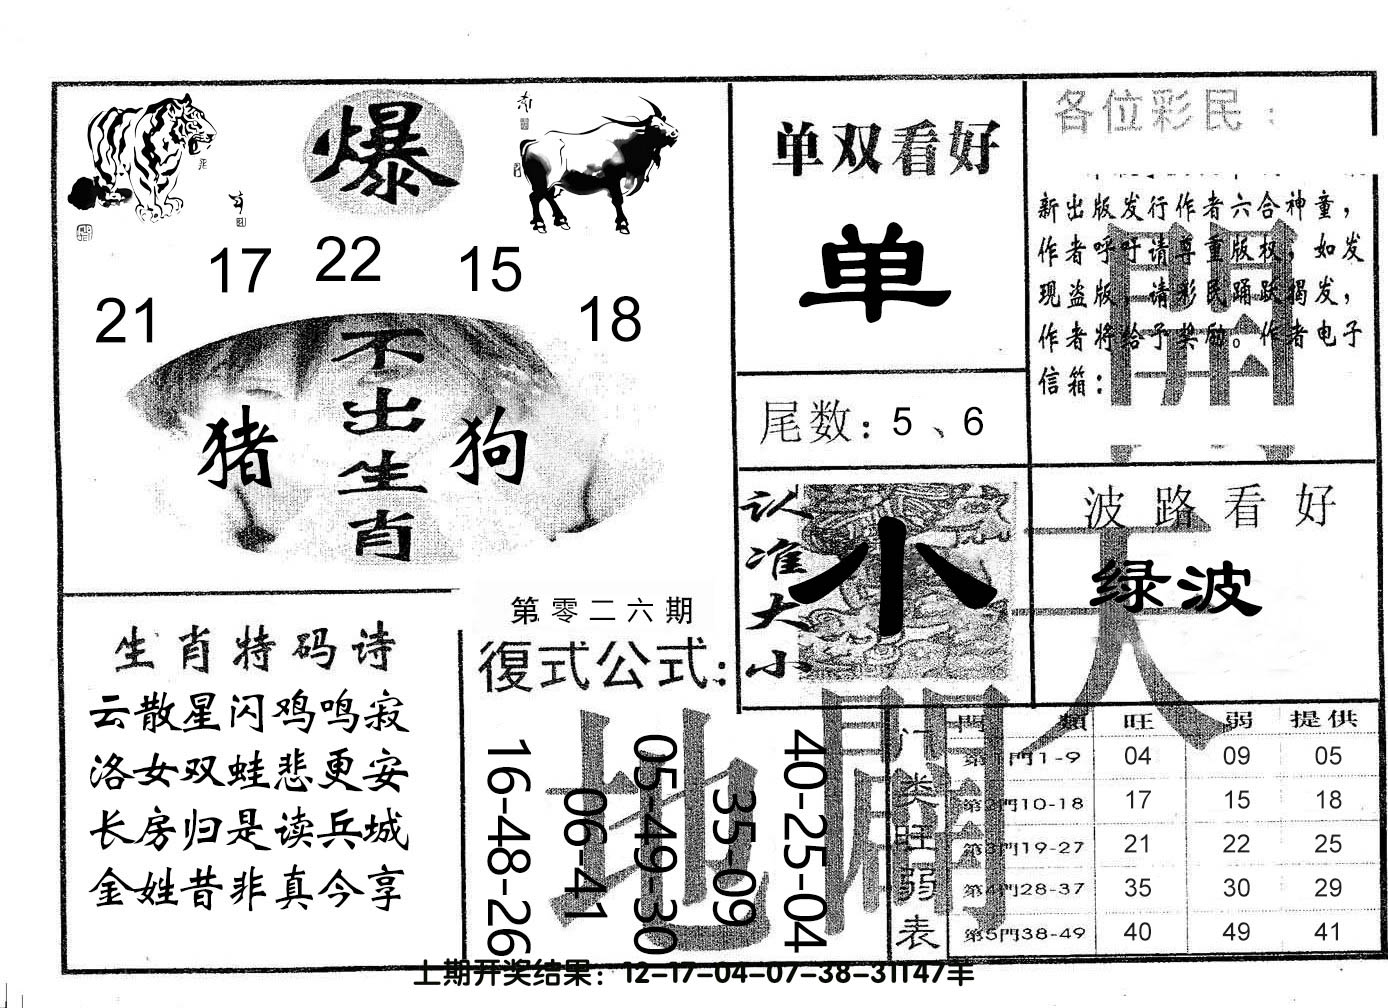 爆
21 17 22 15 18
不出生肖
猪 狗
单双看好
单
尾数：5、6
各位彩民：
新出版发行作者六合神童，
作者呼吁请尊重版权，如发
现盗版，请彩民踊跃揭发，
作者将给予奖励。作者电子
信箱：
開
认准大小
小
波路看好
绿波
天
生肖特码诗
云散星闪鸡鸣寂
洛女双蛙悲更安
长房归是读兵城
金姓昔非真今享
第零二六期
復式公式：
16-48-26
06-41
05-49-30
35-09
40-25-04
地
開
门类旺弱表
門 類 旺 弱 提供
第1門1-9 04 09 05
第2門10-18 17 15 18
第3門19-27 21 22 25
第4門28-37 35 30 29
第5門38-49 40 49 41
上期开奖结果：12-17-04-07-38-31T47羊